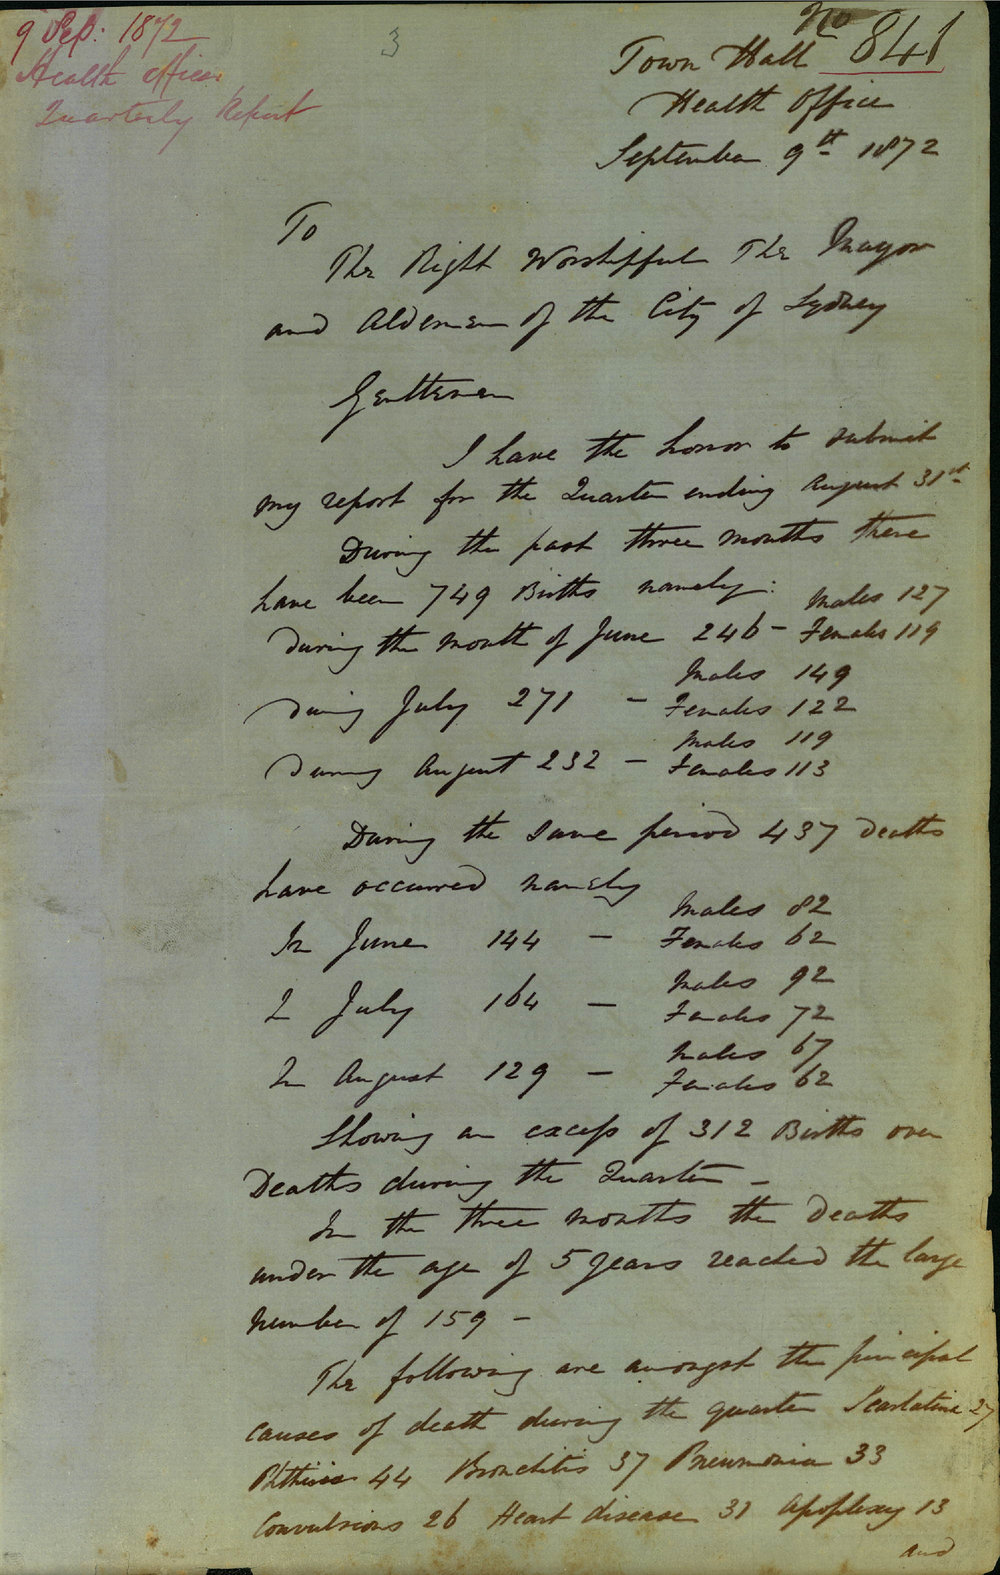 9 Sep: 1872
Health Officer
Quarterly Report
3
No 841
Town Hall
Health Office
September 9th 1872
To
The Right Worshipful The Mayor
and Aldermen of the City of Sydney
Gentlemen
I have the honor to submit
my report for the Quarter ending August 31st
During the past three months there
have been 749 Births namely:
Males 127
During the month of June 246 - Females 119
Males 149
During July 271 - Females 122
Males 119
During August 232 - Females 113
During the same period 437 deaths
have occurred namely
Males 82
In June 144 - Females 62
Males 92
In July 164 - Females 72
Males 67
In August 129 - Females 62
Showing an excess of 312 Births over
Deaths during the Quarter -
In the three months the deaths
under the age of 5 years reached the large
number of 159 -
The following are amongst the principal
causes of death during the quarter Scarlatina 27
Phthisis 44 Bronchitis 37 Pneumonia 33
Convulsions 26 Heart disease 31 Apoplexy 13
and